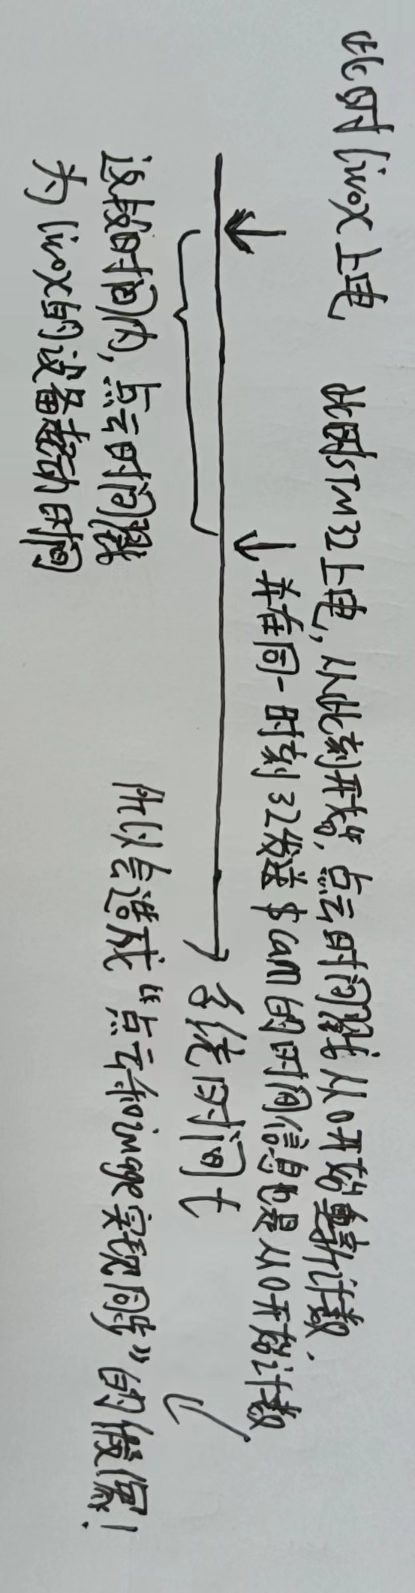 此时livox上电
此时STM32上电,从此刻开始,点云时间戳从0开始重新计数,
并在同一时刻32发送$cam的时间信息也是从0开始计数,
系统时间t
这段时间内,点云时间戳
为livox的设备起动时间
所以会造成“点云和image实现同步”的假像!